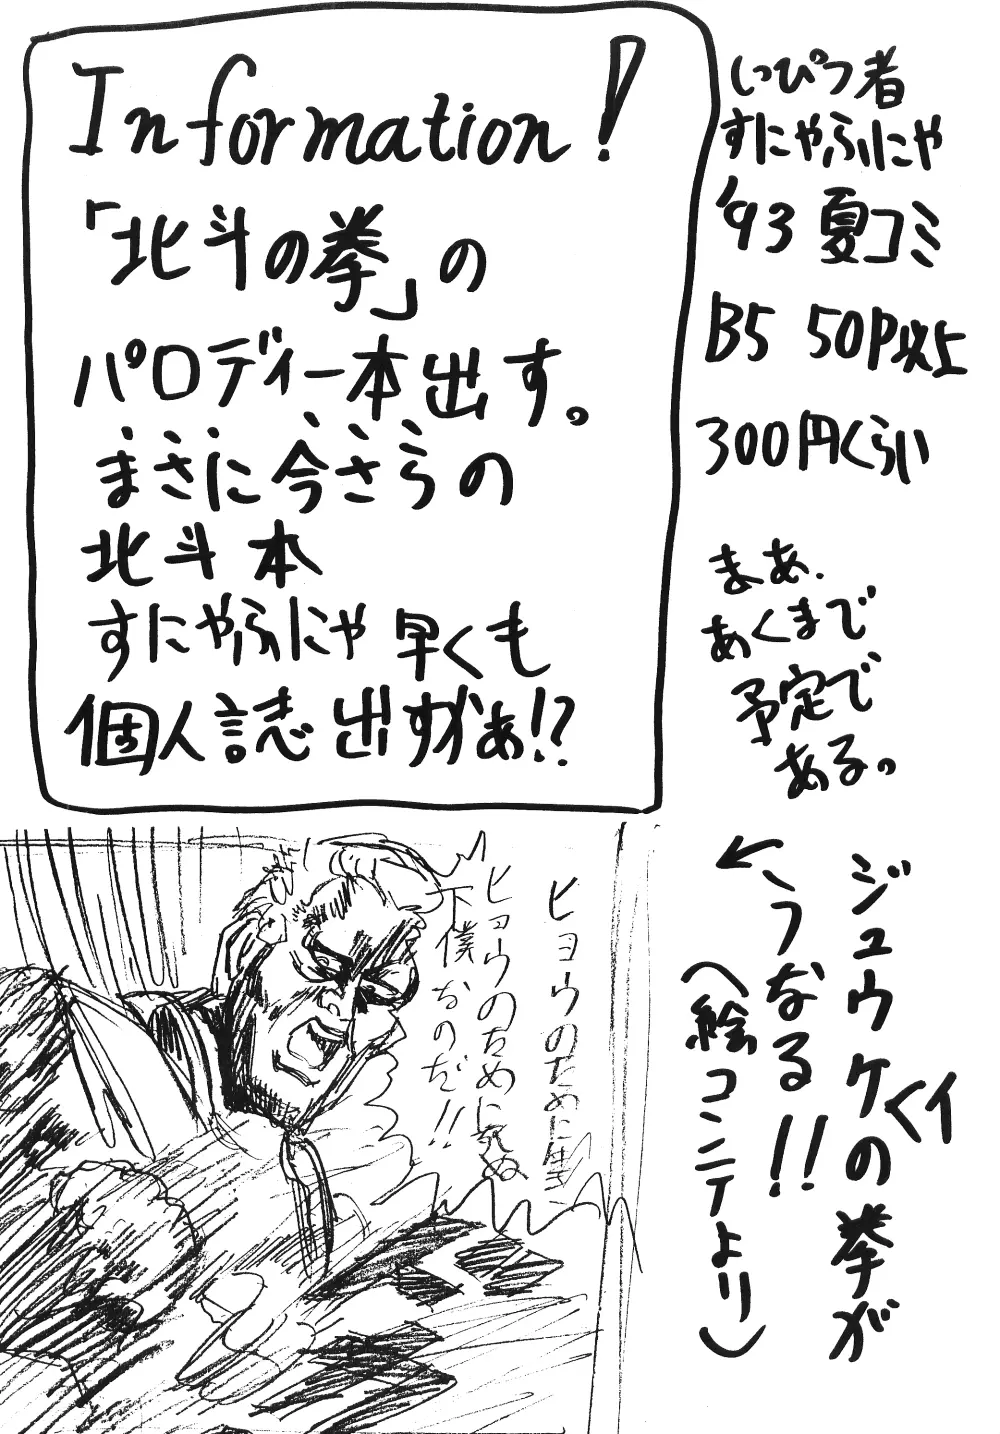 Information!
「北斗の拳」の
パロディー本出す。
まさに今さらの
北斗本
すにゃふにゃ早くも
個人誌出すかぁ!?
しっぴつ者
すにゃふにゃ
'93 夏コミ
B5 50P以上
300円くらい
まあ、
あくまで
予定で
ある。
ジュウケイの拳が
こうなる!!
(絵コンテより)
ヒョウのために生き
ヒョウのために死ぬ
下僕なのだ!!